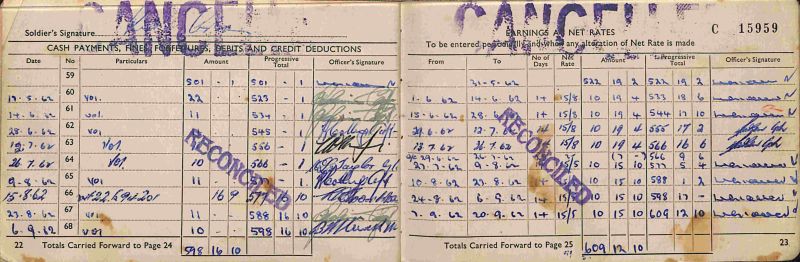 CANCELLED
CANCELLED
Soldier's Signature
CASH PAYMENTS, FINES, FORFEITURES, DEBITS AND CREDIT DEDUCTIONS
Date No Particulars Amount Progressive Total Officer's Signature
59 501 - 1 501 - 1
60
17.5.62 VO1. 22 523 - 1
61
14.6.62 VO1. 11 534 - 1
62
28.6.62 VO1. 11 545 - 1
63
12.7.62 VO1. 11 556 - 1
64
26.7.62 VO1. 10 566 - 1
65
9.8.62 VO1 11 577 - 1
15.8.62 66 16 9 577 16 10
67
23.8.62 VO1 11 - 588 16 10
6.9.62 68 VO1 10 - 598 16 10
RECONCILED
22 Totals Carried Forward to Page 24 598 16 10
C 15959
EARNINGS AT NET RATES
To be entered periodically and when any alteration of Net Rate is made
From To No of Days Net Rate Amount Progressive Total Officer's Signature
31-5-62 522 19 2 522 19 2
1.6.62 14.6.62 14 15/8 10 19 4 533 18 6
15.6.62 28.6.62 14 15/8 10 19 4 544 17 10
29.6.62 12.7.62 14 15/8 10 19 4 555 17 2
13.7.62 26.7.62 14 15/8 10 19 4 566 16 6
29.6.62 26.7.62 (7 -) 566 9 6
27.7.62 9.8.62 10 15 10 577 5 4
10.8.62 23.8.62 10 15 10 588 1 2
24.8.62 6.9.62 14 15/5 10 15 10 598 17 -
7.9.62 20.9.62 14 15/5 10 15 10 609 12 10
RECONCILED
Totals Carried Forward to Page 25 609 12 10 23